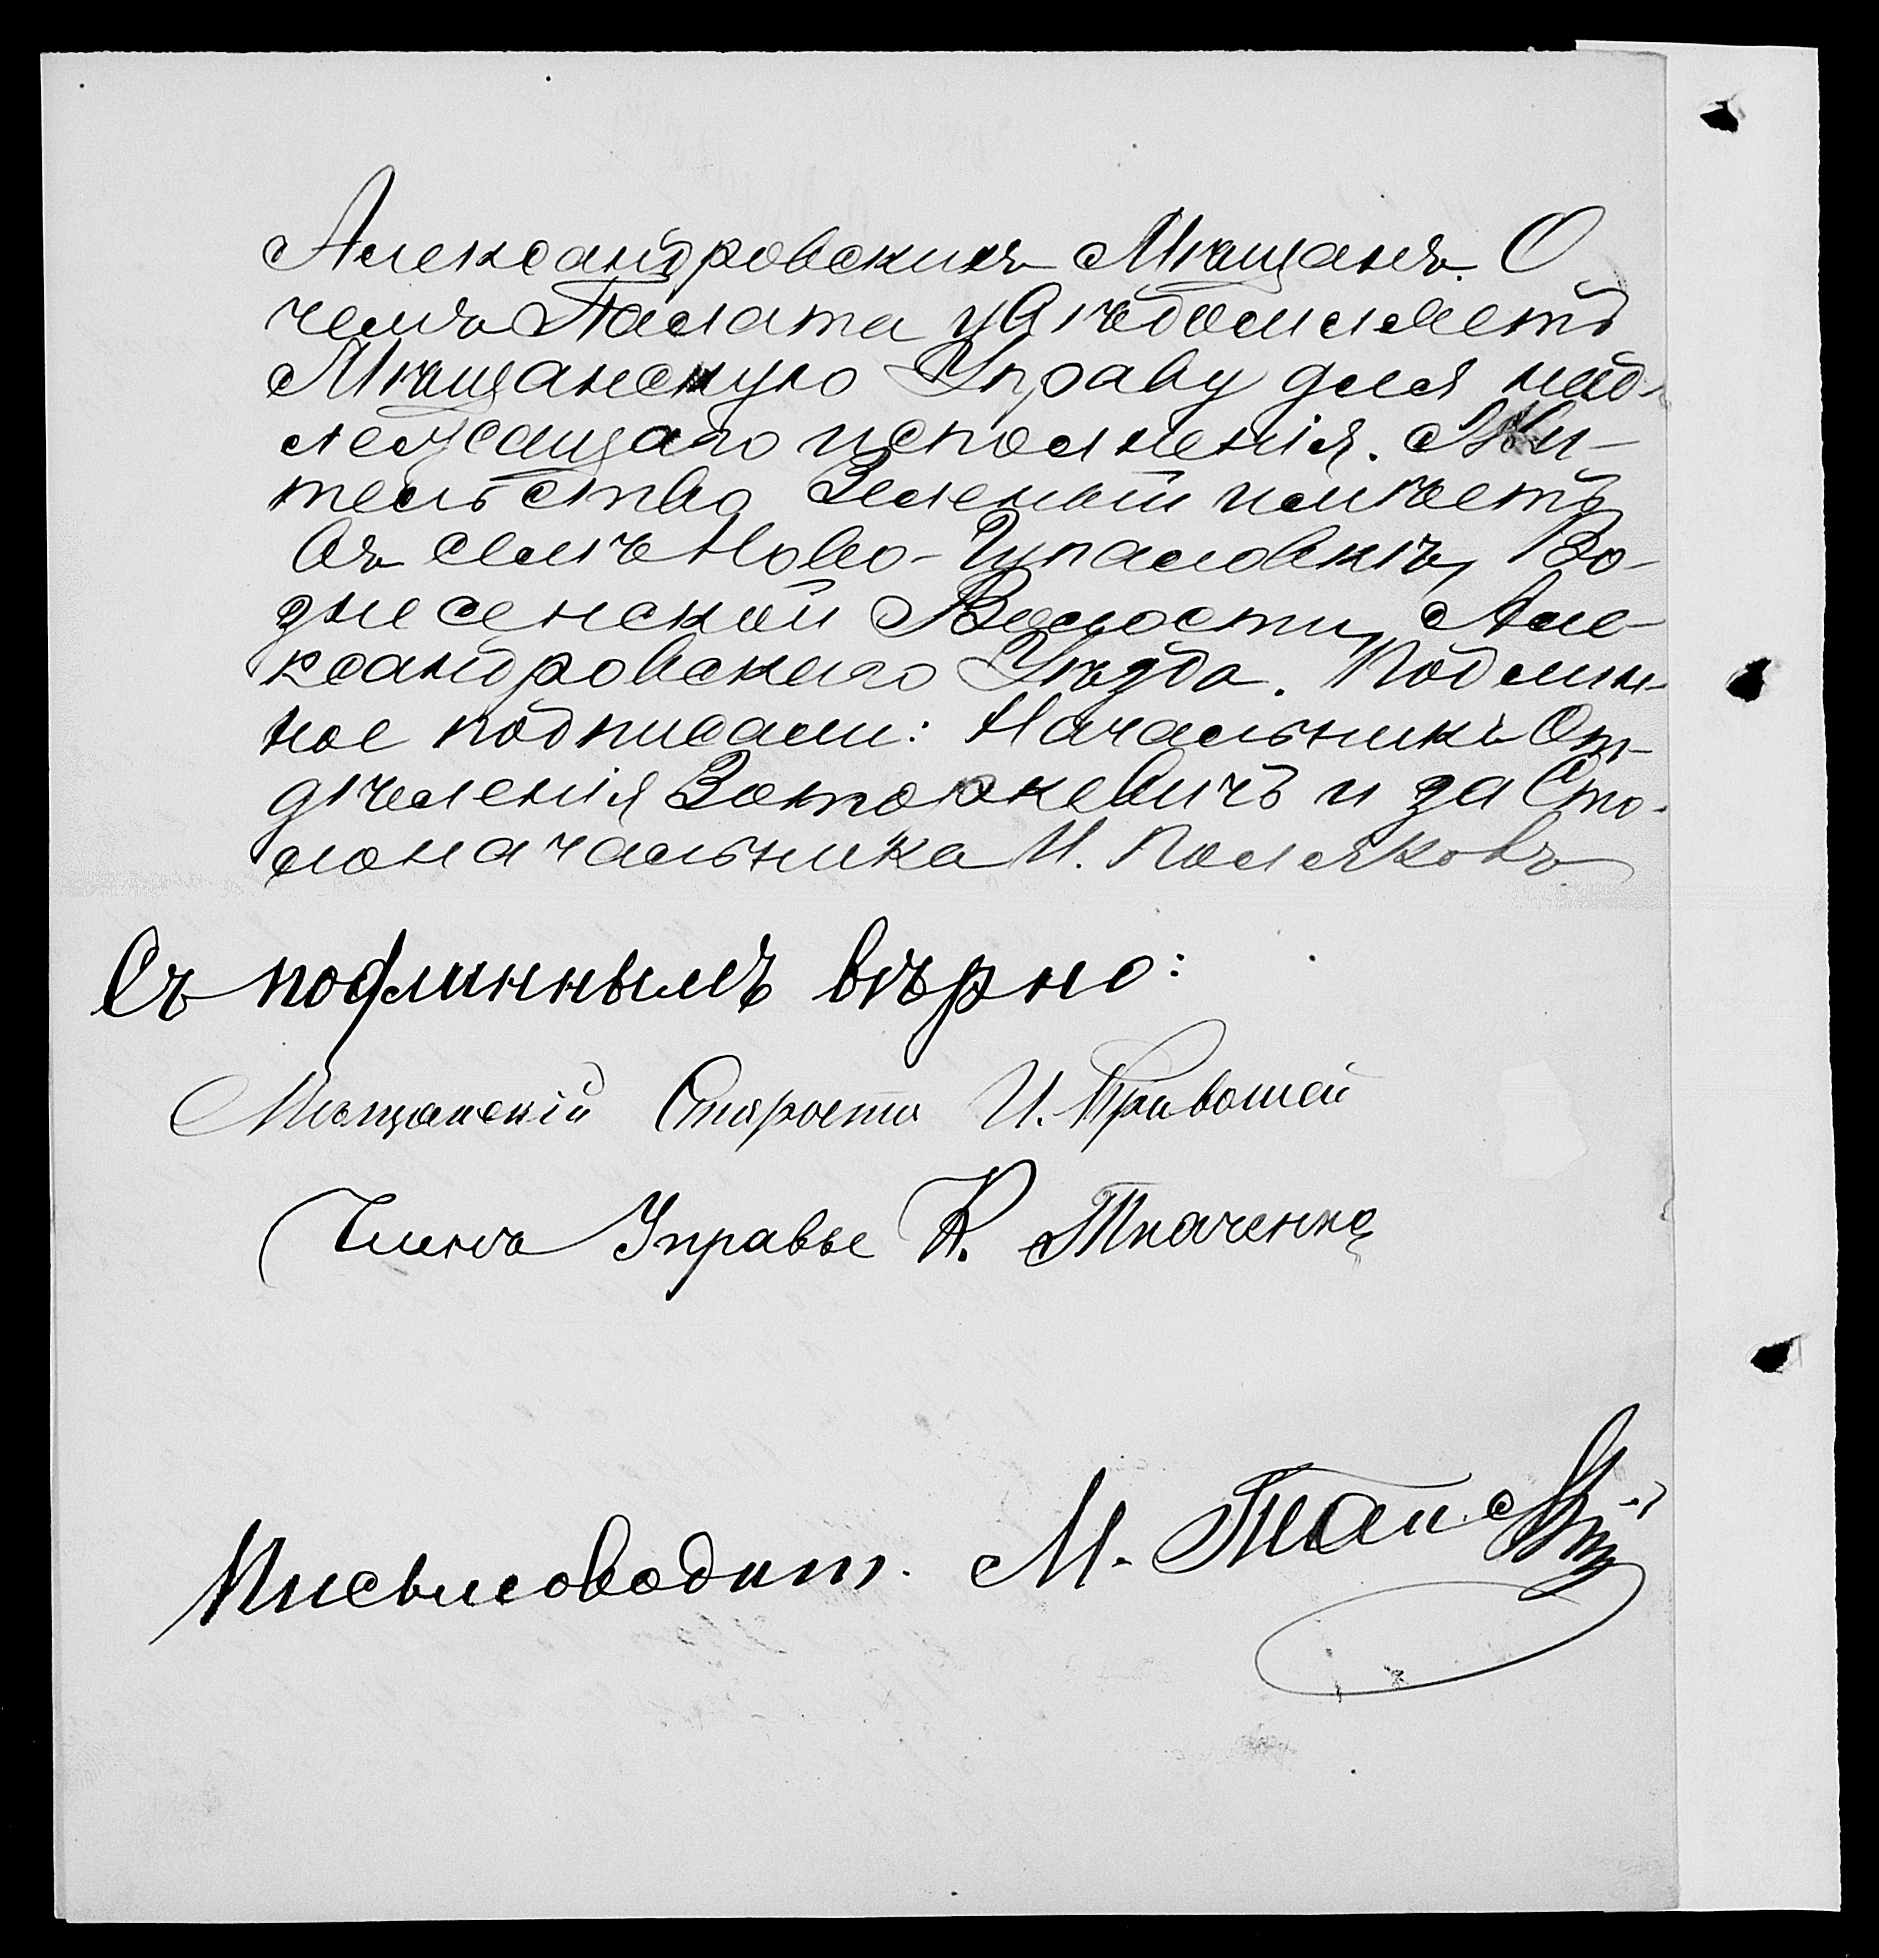 Александровскихъ Мѣщанъ. О
чемъ Палата увѣдомляетъ
Мѣщанскую Управу для над-
лежащаго исполненія. Жи-
тельство Зеленый имѣетъ
въ селѣ Ново-Гупаловкѣ, Во-
знесенской Волости, Але-
ксандровскаго Уѣзда. Подлин-
ное подписали: Начальникъ От-
дѣленія и за Сто-
лоначальника И. Поляковъ
Съ подлиннымъ вѣрно:
Мѣщанскій Староста И. Кривошей
Членъ Управы К. Ткаченко
Письмоводит. М.